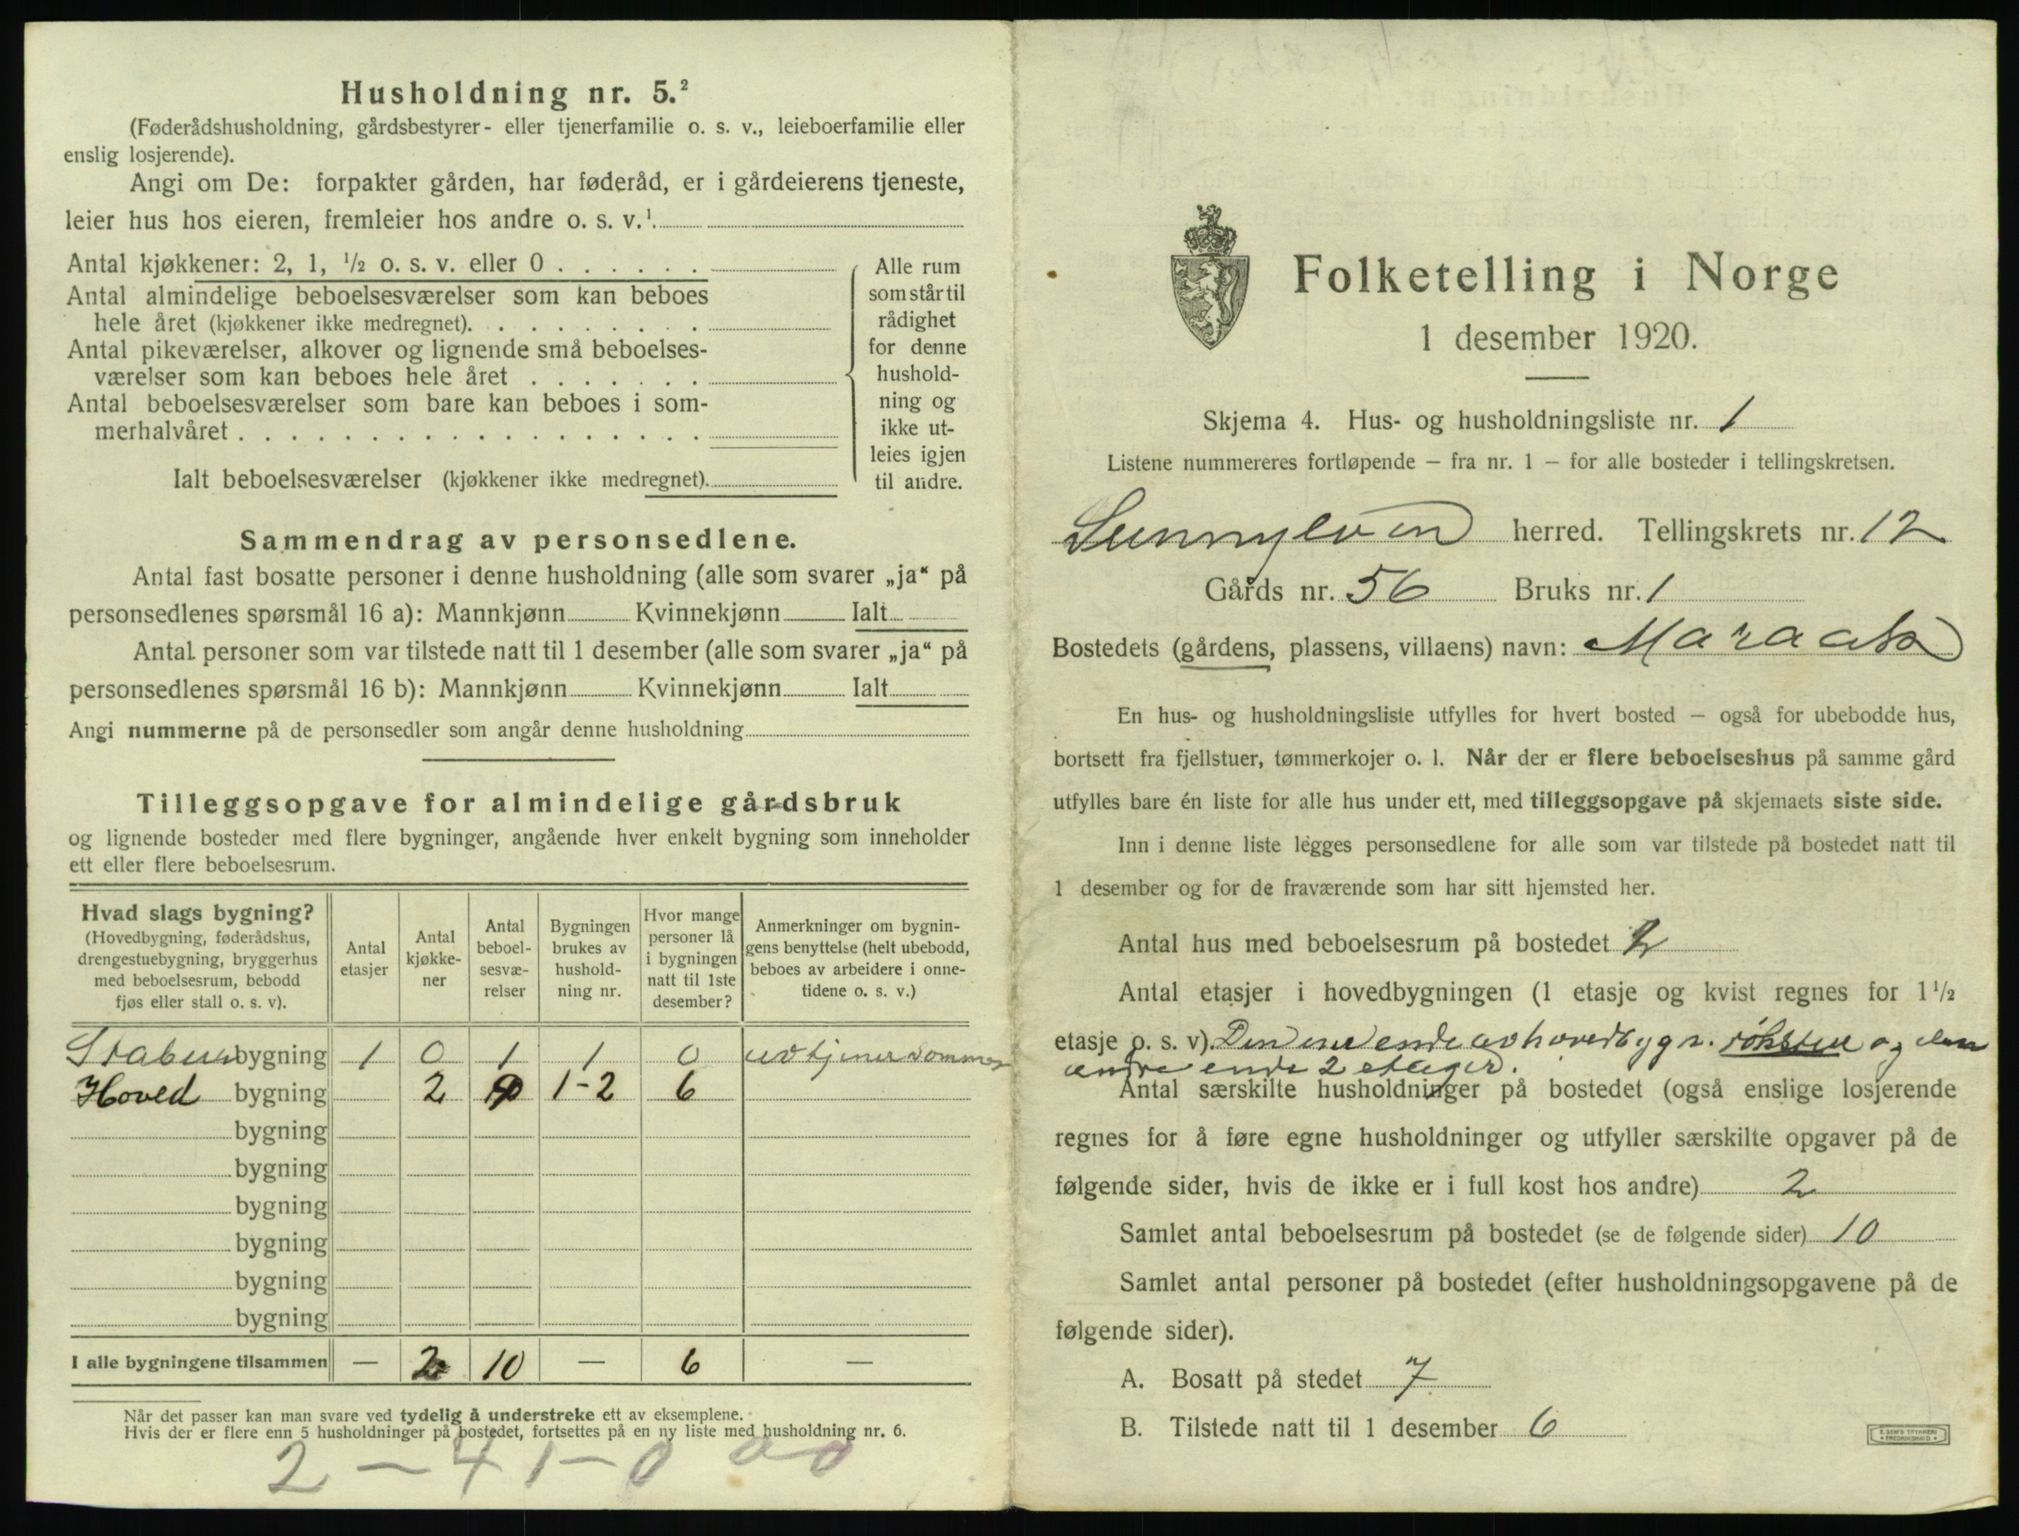 Husholdning nr. 5.²
(Føderådshusholdning, gårdsbestyrer- eller tjenerfamilie o. s. v., leieboerfamilie eller
enslig losjerende).
Angi om De: forpakter gården, har føderåd, er i gårdeierens tjeneste,
leier hus hos eieren, fremleier hos andre o. s. v.¹
Antal kjøkkener: 2, 1, ½ o. s. v. eller 0
Antal almindelige beboelsesværelser som kan beboes
hele året (kjøkkener ikke medregnet).
Antal pikeværelser, alkover og lignende små beboelses-
værelser som kan beboes hele året
Antal beboelsesværelser som bare kan beboes i som-
merhalvåret
Ialt beboelsesværelser (kjøkkener ikke medregnet).
Alle rum
som står til
rådighet
for denne
hushold-
ning og
ikke ut-
leies igjen
til andre.
Sammendrag av personsedlene.
Antal fast bosatte personer i denne husholdning (alle som svarer „ja“ på
personsedlenes spørsmål 16 a): Mannkjønn Kvinnekjønn Ialt
Antal personer som var tilstede natt til 1 desember (alle som svarer „ja“ på
personsedlenes spørsmål 16 b): Mannkjønn Kvinnekjønn Ialt
Angi nummerne på de personsedler som angår denne husholdning
Tilleggsopgave for almindelige gårdsbruk
og lignende bosteder med flere bygninger, angående hver enkelt bygning som inneholder
ett eller flere beboelsesrum.
Hvad slags bygning?
(Hovedbygning, føderådshus,
drengestuebygning, bryggerhus
med beboelsesrum, bebodd
fjøs eller stall o. s. v).
Antal
etasjer
Antal
kjøkke-
ner
Antal
beboel-
sesvæ-
relser
Bygningen
brukes av
hushold-
ning nr.
Hvor mange
personer lå
i bygningen
natt til 1ste
desember?
Anmerkninger om bygnin-
gens benyttelse (helt ubebodd,
beboes av arbeidere i onne-
tidene o. s. v.)
Stabur bygning 1 0 1 1 0
Hoved bygning 2 9 1-2 6
bygning
bygning
bygning
bygning
bygning
bygning
I alle bygningene tilsammen — 2 10 — 6 —
Når det passer kan man svare ved tydelig å understreke ett av eksemplene.
Hvis der er flere enn 5 husholdninger på bostedet, fortsettes på en ny liste med husholdning nr. 6.
2 — 41 — 0 00
Folketelling i Norge
1 desember 1920.
Skjema 4. Hus- og husholdningsliste nr. 1
Listene nummereres fortløpende – fra nr. 1 – for alle bosteder i tellingskretsen.
Sunnylven herred. Tellingskrets nr. 12
Gårds nr. 56 Bruks nr. 1
Bostedets (gårdens, plassens, villaens) navn: Maraak
En hus- og husholdningsliste utfylles for hvert bosted – også for ubebodde hus,
bortsett fra fjellstuer, tømmerkojer o. l. Når der er flere beboelseshus på samme gård
utfylles bare én liste for alle hus under ett, med tilleggsopgave på skjemaets siste side.
Inn i denne liste legges personsedlene for alle som var tilstede på bostedet natt til
1 desember og for de fraværende som har sitt hjemsted her.
Antal hus med beboelsesrum på bostedet 2
Antal etasjer i hovedbygningen (1 etasje og kvist regnes for 1½
etasje o. s. v). Den ene ende av hovedbygn. og den
andre ende 2 etager.
Antal særskilte husholdninger på bostedet (også enslige losjerende
regnes for å føre egne husholdninger og utfyller særskilte opgaver på de
følgende sider, hvis de ikke er i full kost hos andre) 2
Samlet antal beboelsesrum på bostedet (se de følgende sider) 10
Samlet antal personer på bostedet (efter husholdningsopgavene på de
følgende sider).
A. Bosatt på stedet 7
B. Tilstede natt til 1 desember 6